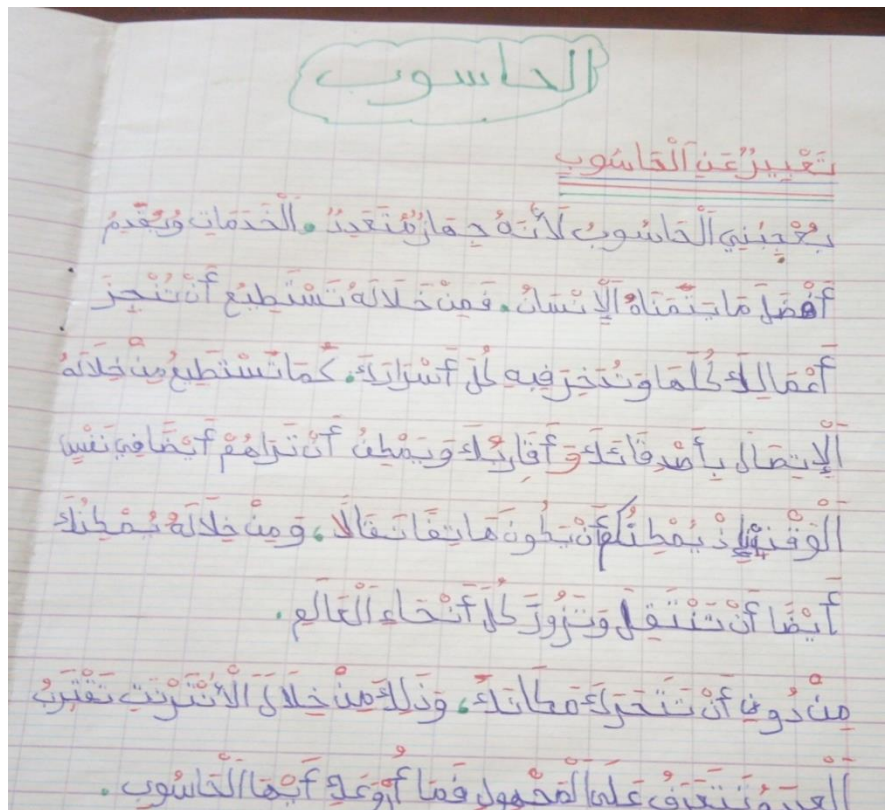 الحاسوب
تَعْبِيرٌ عَنِ الْحَاسُوبِ
يُعْجِبُنِي الْحَاسُوبُ لَأَنَّهُ جِهَازٌ مُتَعَدِّدُ الْخَدَمَاتِ وَيُقَدِّمُ
أَفْضَلَ مَا يَتَمَنَّاهُ الْإِنْسَانُ. فَمِنْ خَلَالَهُ تَسْتَطِيعُ أَنْ تُنْجِزَ
أَعْمَالَكَ كُلَّهَا وَتَدَّخِرَ فِيهِ كُلَّ أَسْرَارَكَ. كَمَا تَسْتَطِيعُ مِنْ خِلَالَهُ
الْإِتِصَالَ بِأَصْدِقَائَكَ وَ أَقَارِبَكَ وَيُمْكِنُ أَنْ تَرَاهُمْ أَيْضًا فِي نَفْسِ
الْوَقْتِ إِذْ يُمْكِنُكُمْ أَنْ يَكُونَ هَاتِفًا نَقَّالًا، وَمِنْ خِلَالَهُ يُمْكِنُكَ
أَيْضًا أَنْ تَنْتَقِلَ وَتَزُورَ كُلَّ أَنْحَاءِ الْعَالَمِ.
مِنْ دُونِ أَنْ تَتَحَرَكَ مَكَانَكَ، وَذَلِكَ مِنْ خِلَالَ الْأَنْتَرْنَتِ تَقْتَرِبُ
وَتَتَعَرَفُ عَلَى الْمَجْهُولِ فَمَا أَرْوَعَكَ أَيُّهَا الْحَاسُوبُ.